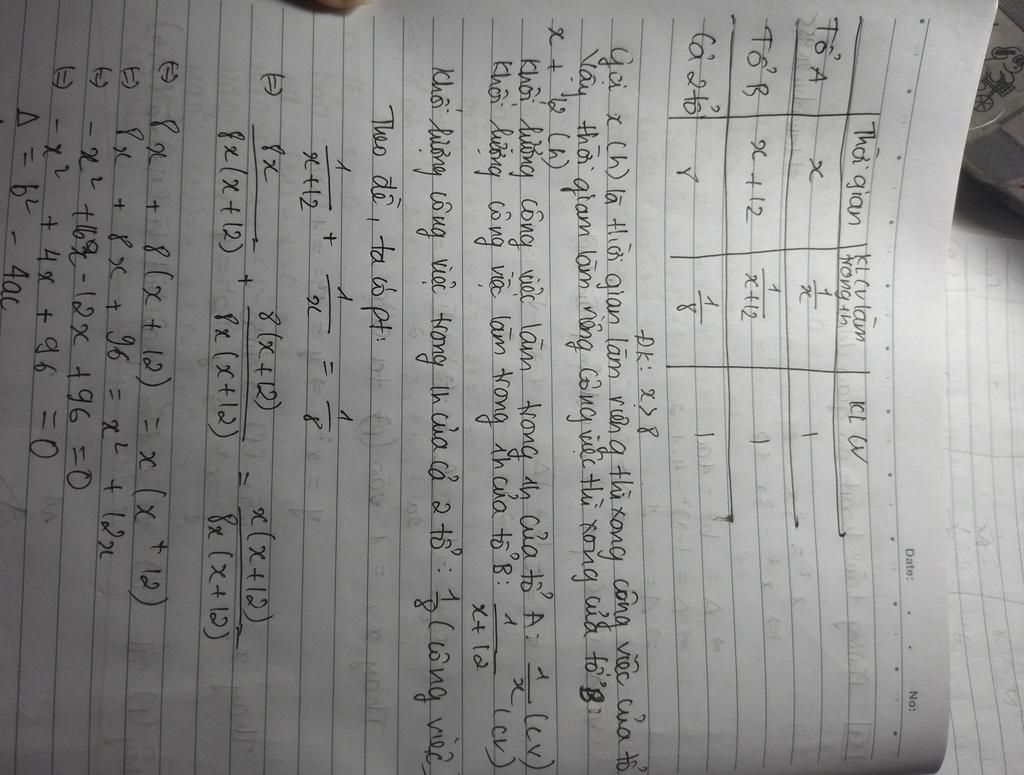 Date: No:
Thời gian | KLCV làm trong 1h | KLCV
Tổ A | x | 1/x | 1
Tổ B | x + 12 | 1/(x+12) | 1
Cả 2 tổ | 8 | 1/8 | 1
ĐK: x > 8
Gọi x (h) là thời gian làm riêng thì xong công việc của tổ
Vậy thời gian làm riêng công việc thì xong của tổ B:
x + 12 (h)
Khối lượng công việc làm trong 1h của tổ A: 1/x (CV)
Khối lượng công việc làm trong 1h của tổ B: 1/(x+12) (CV)
Khối lượng công việc trong 1h của cả 2 tổ: 1/8 (công việc
Theo đề, ta có pt:
1/(x+12) + 1/x = 1/8
(=) 8x/8x(x+12) + 8(x+12)/8x(x+12) = x(x+12)/8x(x+12)
(=) 8x + 8(x+12) = x(x+12)
(=) 8x + 8x + 96 = x² + 12x
(=) - x² + 16x - 12x + 96 = 0
(=) - x² + 4x + 96 = 0
Δ = b² - 4ac